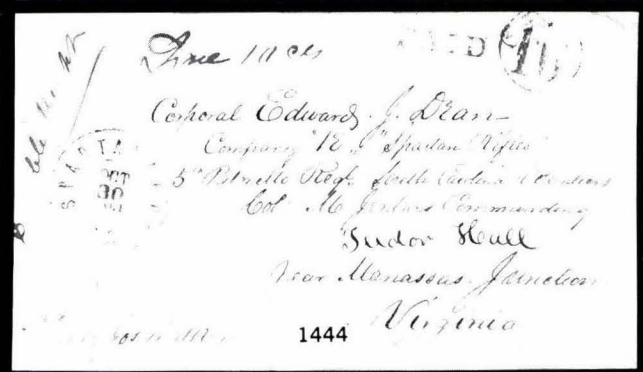 Due 10 cts
PAID 10
Corporal Edward J. Dean
Company "K" "Spartan Rifles"
5th Palmetto Regt. South Carolina Volunteers
Col M Jenkins Commanding
SPARTA
OCT
30
Tudor Hall
Near Manassas Junction
Virginia
1444